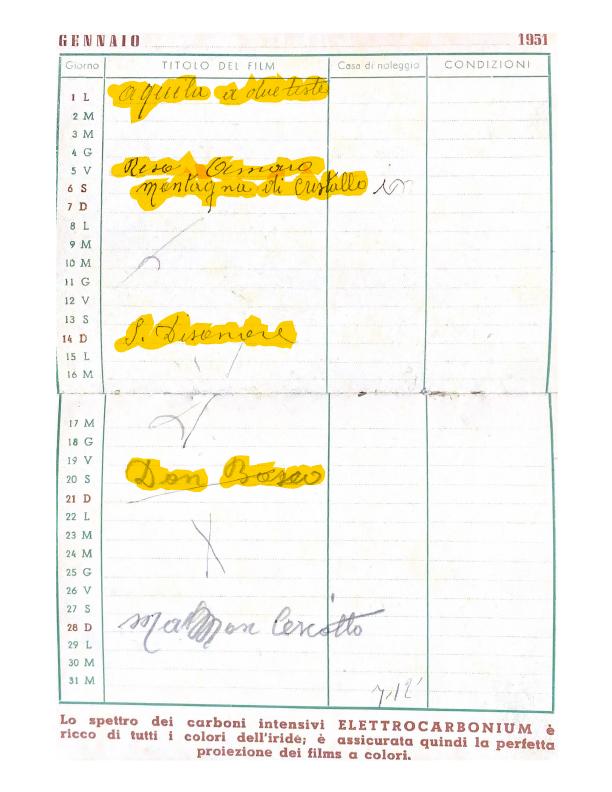 GENNAIO 1951
Giorno TITOLO DEL FILM Casa di noleggio CONDIZIONI
1 L aquila a due teste
2 M
3 M
4 G
5 V Riso Amaro
6 S montagna di Cristallo in
7 D
8 L
9 M
10 M
11 G
12 V
13 S
14 D S.
15 L
16 M
17 M
18 G
19 V
20 S Don Bosco
21 D
22 L
23 M
24 M
25 G
26 V
27 S
28 D
29 L
30 M
31 M 7.12'
Lo spettro dei carboni intensivi ELETTROCARBONIUM è
ricco di tutti i colori dell'iride; è assicurata quindi la perfetta
proiezione dei films a colori.